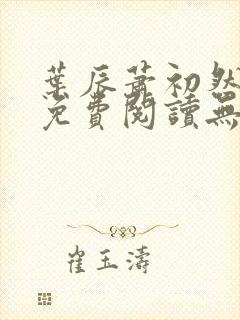 葉辰蕭初然
免費閱讀無
崔玉濤